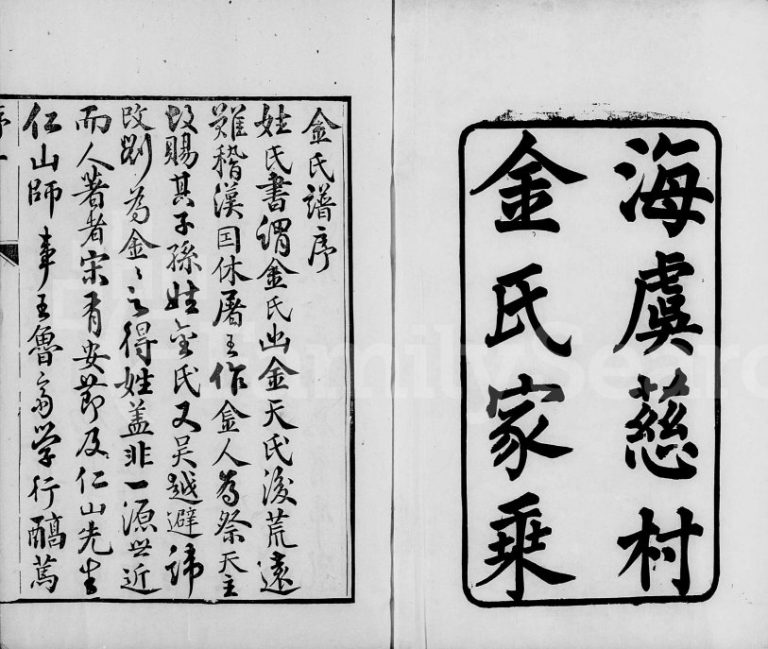 海虞慈村
金氏家乗
金氏譜序
姓氏書謂金氏出金天氏後荒遠
難稽漢囯休屠王作金人為祭天主
故賜其子孫姓金氏又吴越避諱
改劉為金〻之得姓盖非一源世近
而人著者宋有安節及仁山先生
仁山師事王魯斋学行醕篤
序一
FamilySearch